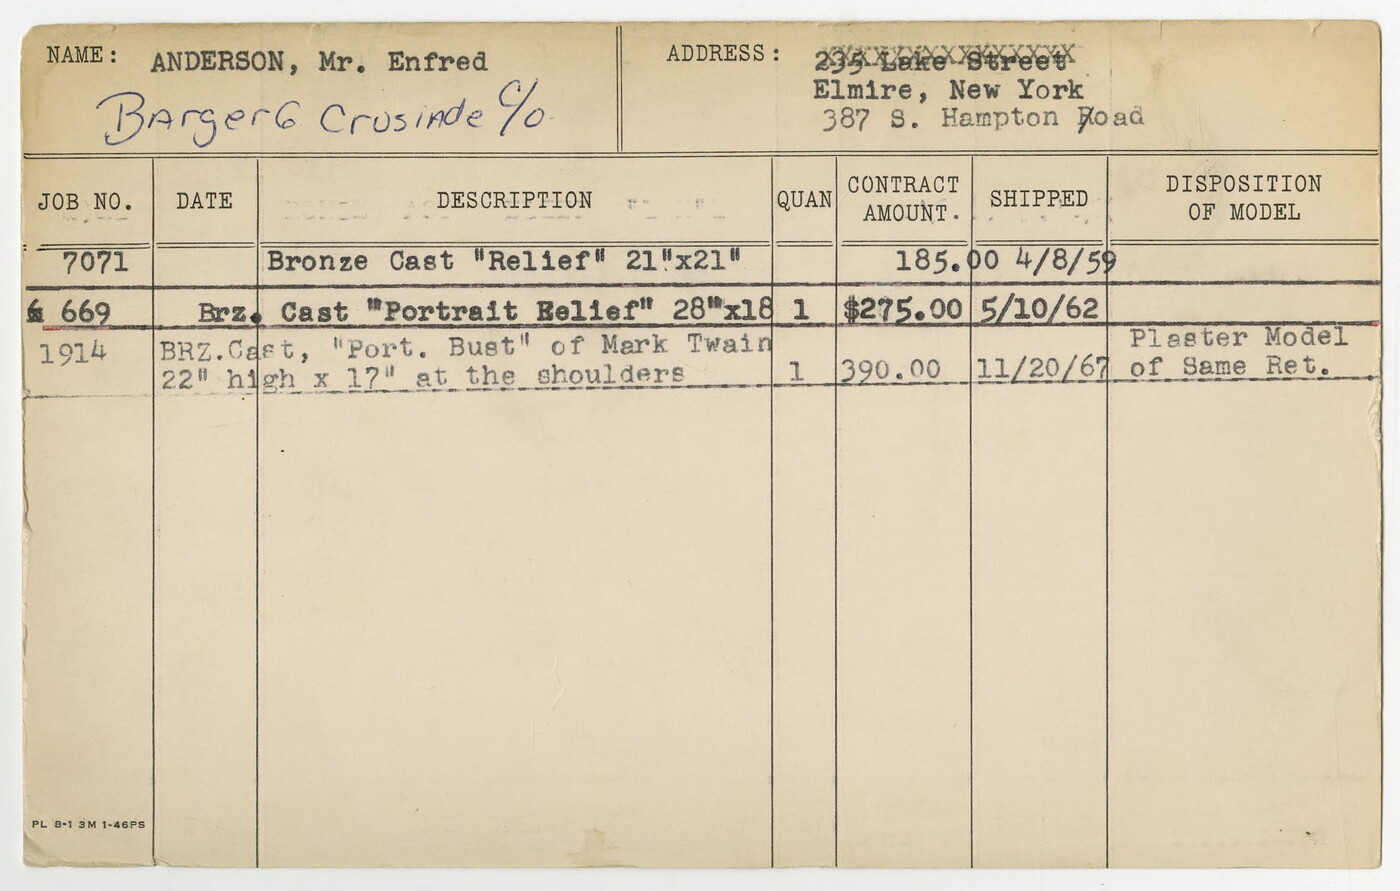 NAME: ANDERSON, Mr. Enfred
Barger6 Crusinde c/o
ADDRESS: 235 Lake Street
Elmire, New York
387 S. Hampton Road
JOB NO. DATE DESCRIPTION QUAN CONTRACT AMOUNT. SHIPPED DISPOSITION OF MODEL
7071 Bronze Cast "Relief" 21"x21" 185.00 4/8/59
669 Brz. Cast "Portrait Relief" 28"x18 1 $275.00 5/10/62
1914 BRZ.Cast, "Port. Bust" of Mark Twain Plaster Model
22" high x 17" at the shoulders 1 390.00 11/20/67 of Same Ret.
PL 8-1 3M 1-46PS